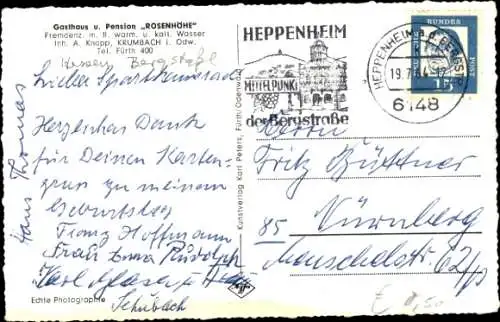 Gasthaus u. Pension „ROSENHÖHE"
Fremdenz. m. fl. warm. u. kalt. Wasser
Inh. A. Knapp, KRUMBACH i. Odw.
Tel. Fürth 400
Hessen Bergstaße
Lieber Sportkamerad
Herzlichen Dank
für Deinen Karten-
gruß zu meinem
Geburtstag
Franz Hoffmann
Frau Anna Rudolph
Karl
Schubach
Hans Thomas
Echte Photographie
Kunstverlag Karl Peters, Fürth/Odenwald
Agfa
HEPPENHEIM
MITTELPUNKT
der Bergstraße
HEPPENHEIM a d BERGSTR
19.7.64-17
6148
BUNDES
15
Herrn
Fritz Büttner
85 Nürnberg
62/p
€ 0,50